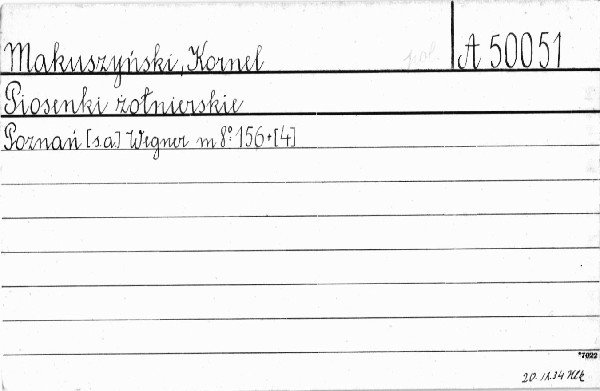 Makuszyński, Kornel
A 50051
Piosenki żołnierskie
Poznań [s.a.] Wegner m 8° 156+[4]
*7022